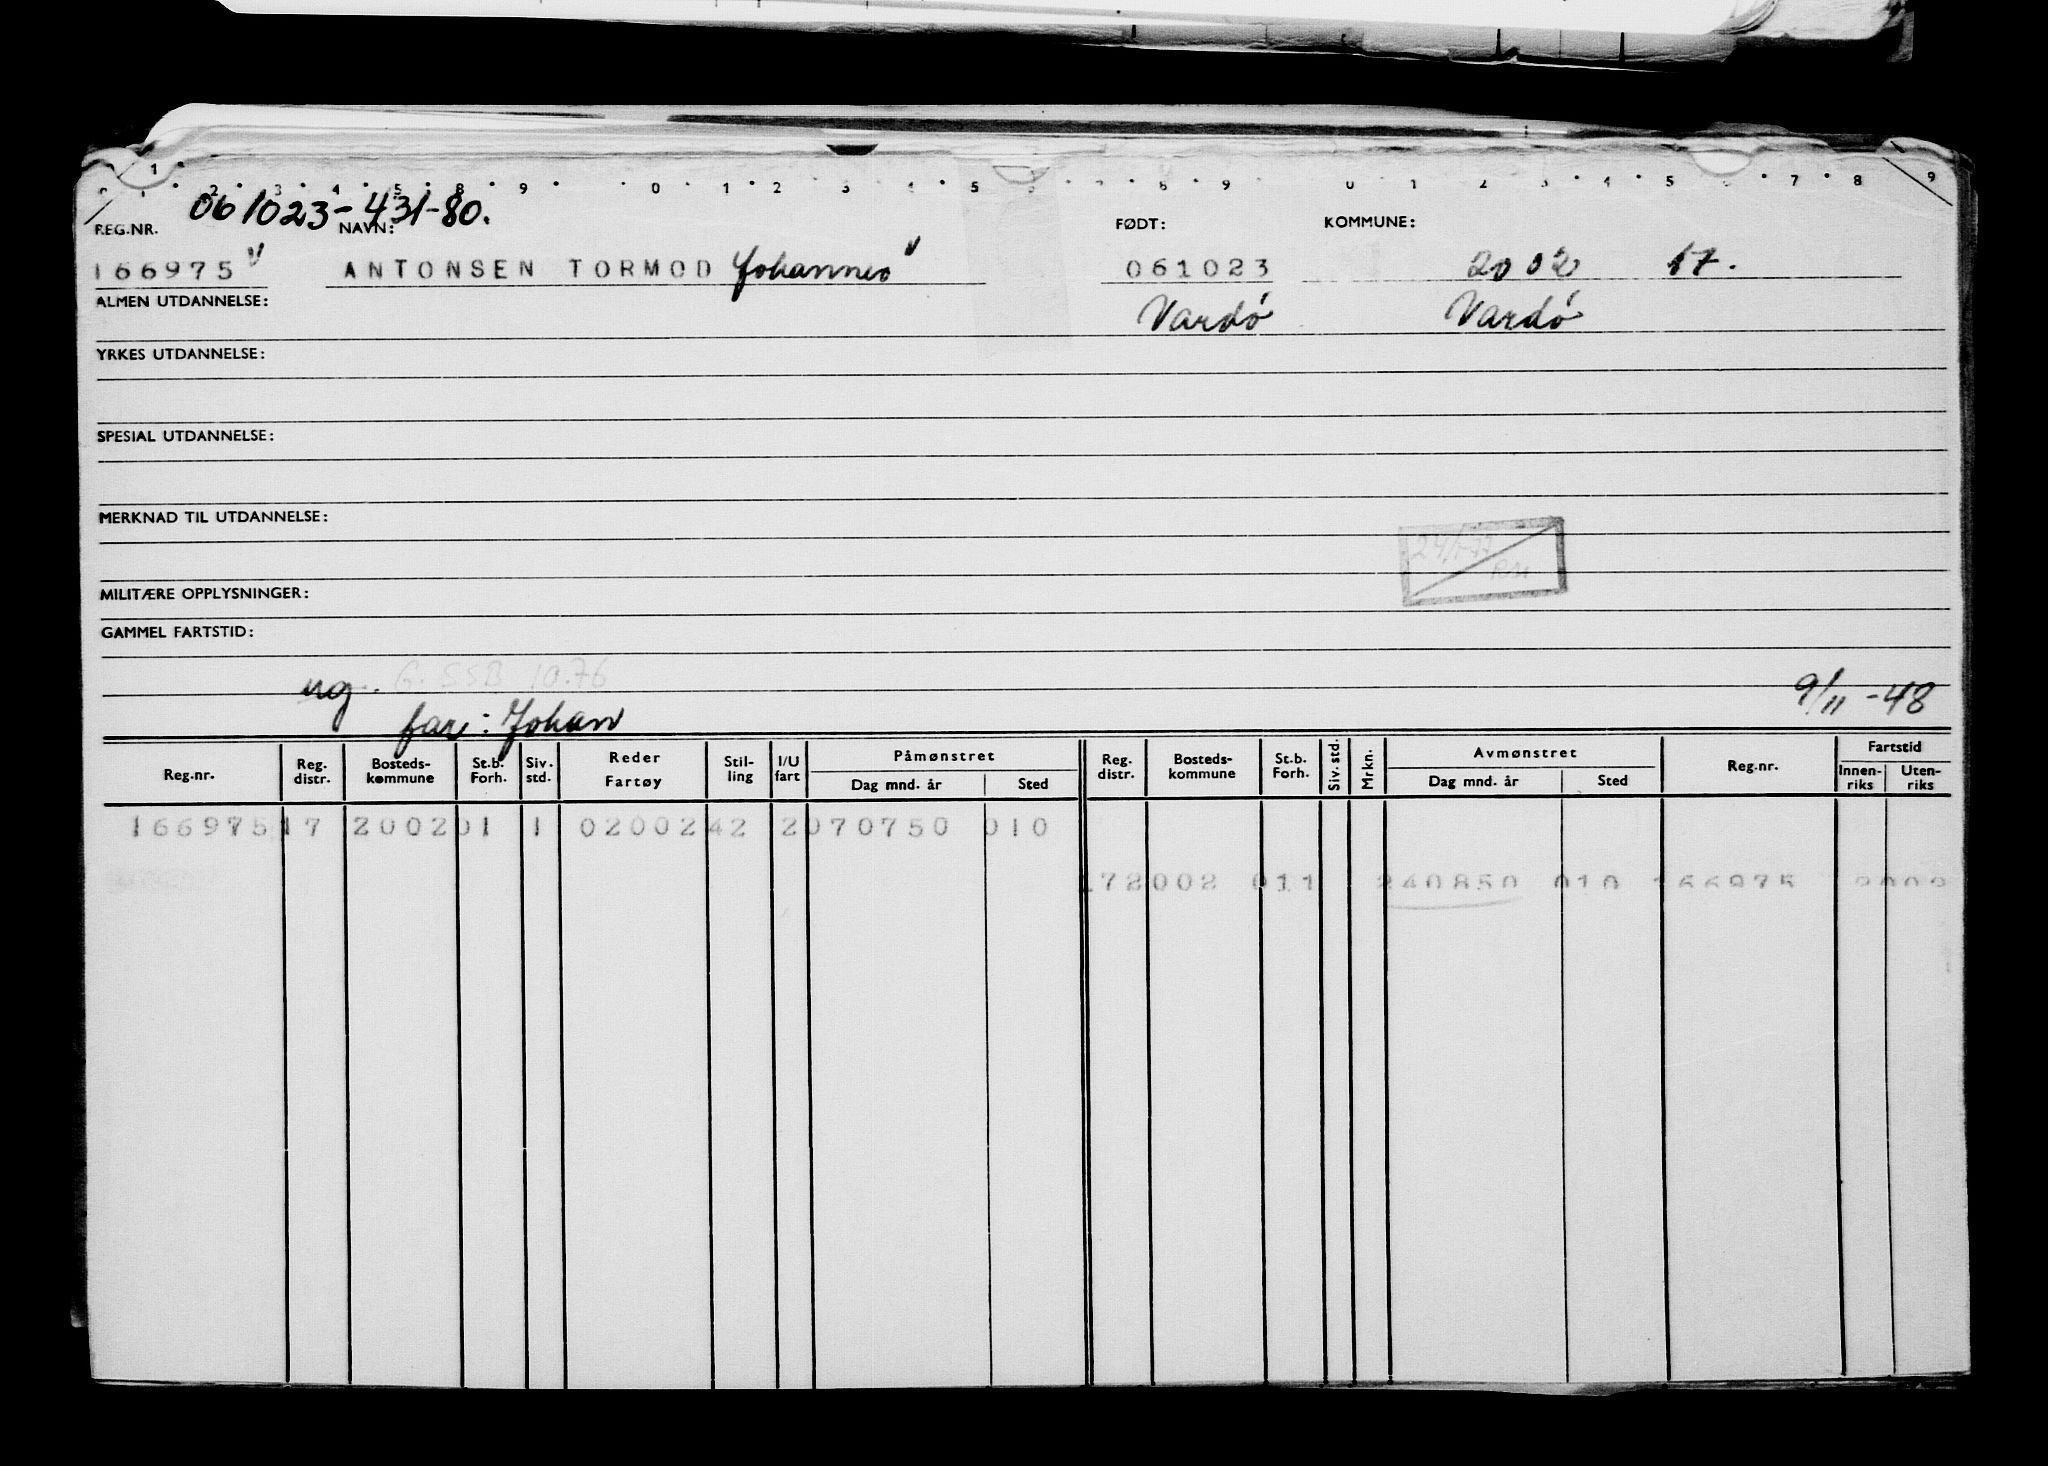 061023-431-80.
REG.NR. NAVN: FØDT: KOMMUNE:
166975 v ANTONSEN TORMOD Johannes v 061023 2002 17.
ALMEN UTDANNELSE: Vardö Vardö
YRKES UTDANNELSE:
SPESIAL UTDANNELSE:
MERKNAD TIL UTDANNELSE:
MILITÆRE OPPLYSNINGER:
GAMMEL FARTSTID:
ug. G. SSB 10.76
far: Johan
9/11-48
Reg.nr. Reg. distr. Bosteds-kommune St.b. Forh. Siv. std. Reder Fartøy Stil-ling I/U fart Påmønstret Dag mnd. år Sted Reg. distr. Bosteds-kommune St.b. Forh. Siv. std. Mrkn. Avmønstret Dag mnd. år Sted Reg.nr. Fartstid Innen-riks Uten-riks
166975 17 2002 01 1 02002 42 2 070750 010
172002 011 240850 010 166975